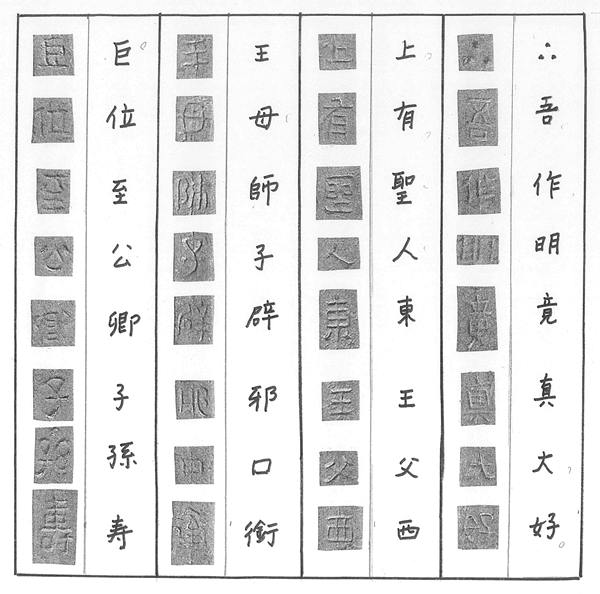 ∴吾作明竟真大好。
上有聖人東王父西
王母師子辟邪口銜
巨位至公卿子孫寿